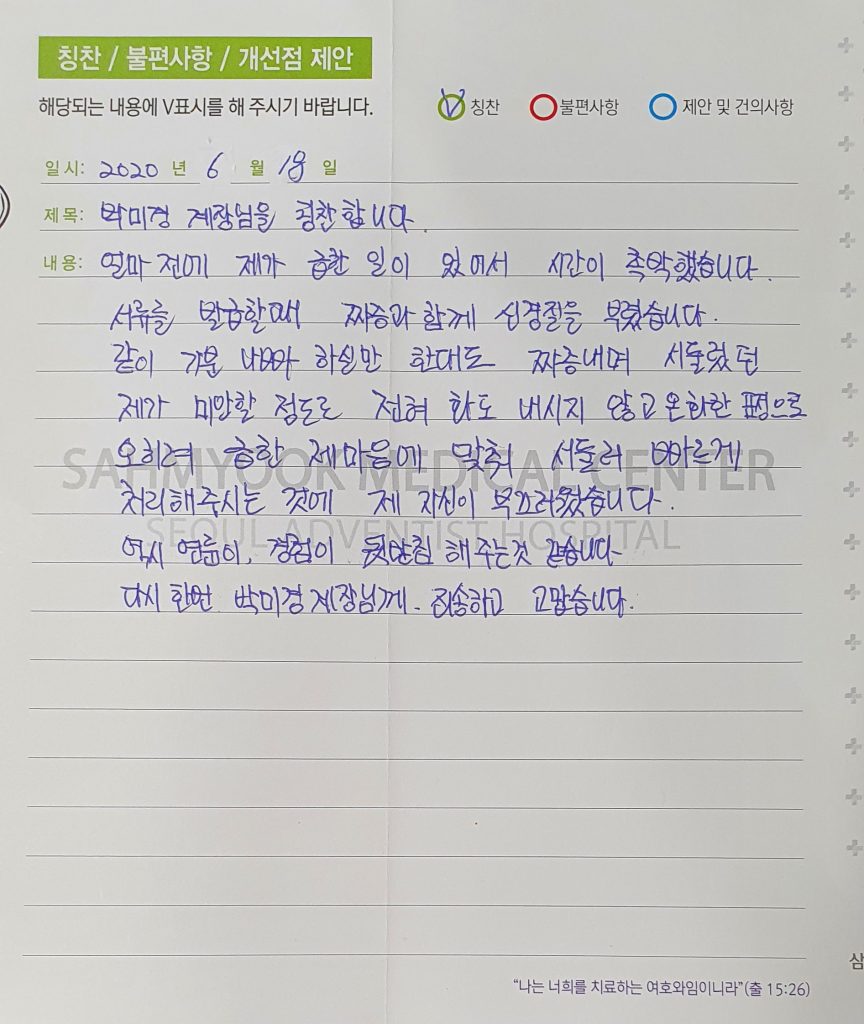 칭찬 / 불편사항 / 개선점 제안
해당되는 내용에 V표시를 해 주시기 바랍니다. V 칭찬 불편사항 제안 및 건의사항
일시: 2020 년 6 월 18 일
제목: 박미경 계장님을 칭찬합니다.
내용: 얼마 전에 제가 급한 일이 있어서 시간이 촉박했습니다.
서류를 발급할때 짜증과 함께 신경질을 부렸습니다.
같이 기분 나빠 하실만 한대도 짜증내며 서둘렀던
제가 미안할 정도로 전혀 화도 내시지 않고 온화한 표정으로
오히려 급한 제마음에 맞춰 서둘러 빠르게
SAHMYOOK MEDICAL CENTER
처리해주시는 것에 제 자신이 부끄러웠습니다.
SEOUL ADVENTIST HOSPITAL
역시 연륜이, 경험이 뒷받침 해주는것 같습니다
다시 한번 박미경계장님께. 죄송하고 고맙습니다.
삼
“나는 너희를 치료하는 여호와임이니라”(출 15:26)